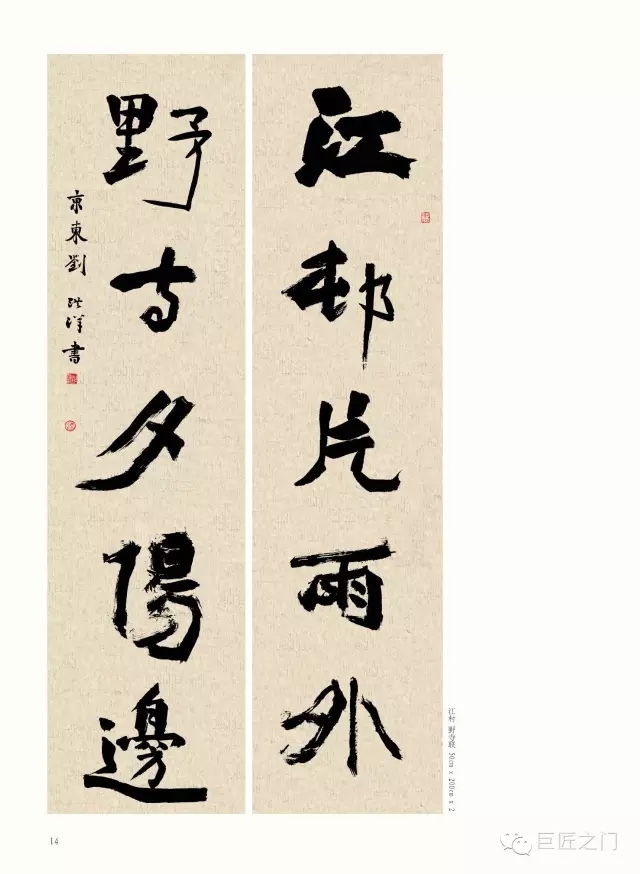 江邨片雨外
野寺夕陽邊
京東劉洪洋書
江村 野寺联 50cm x 200cm x 2
14
巨匠之门